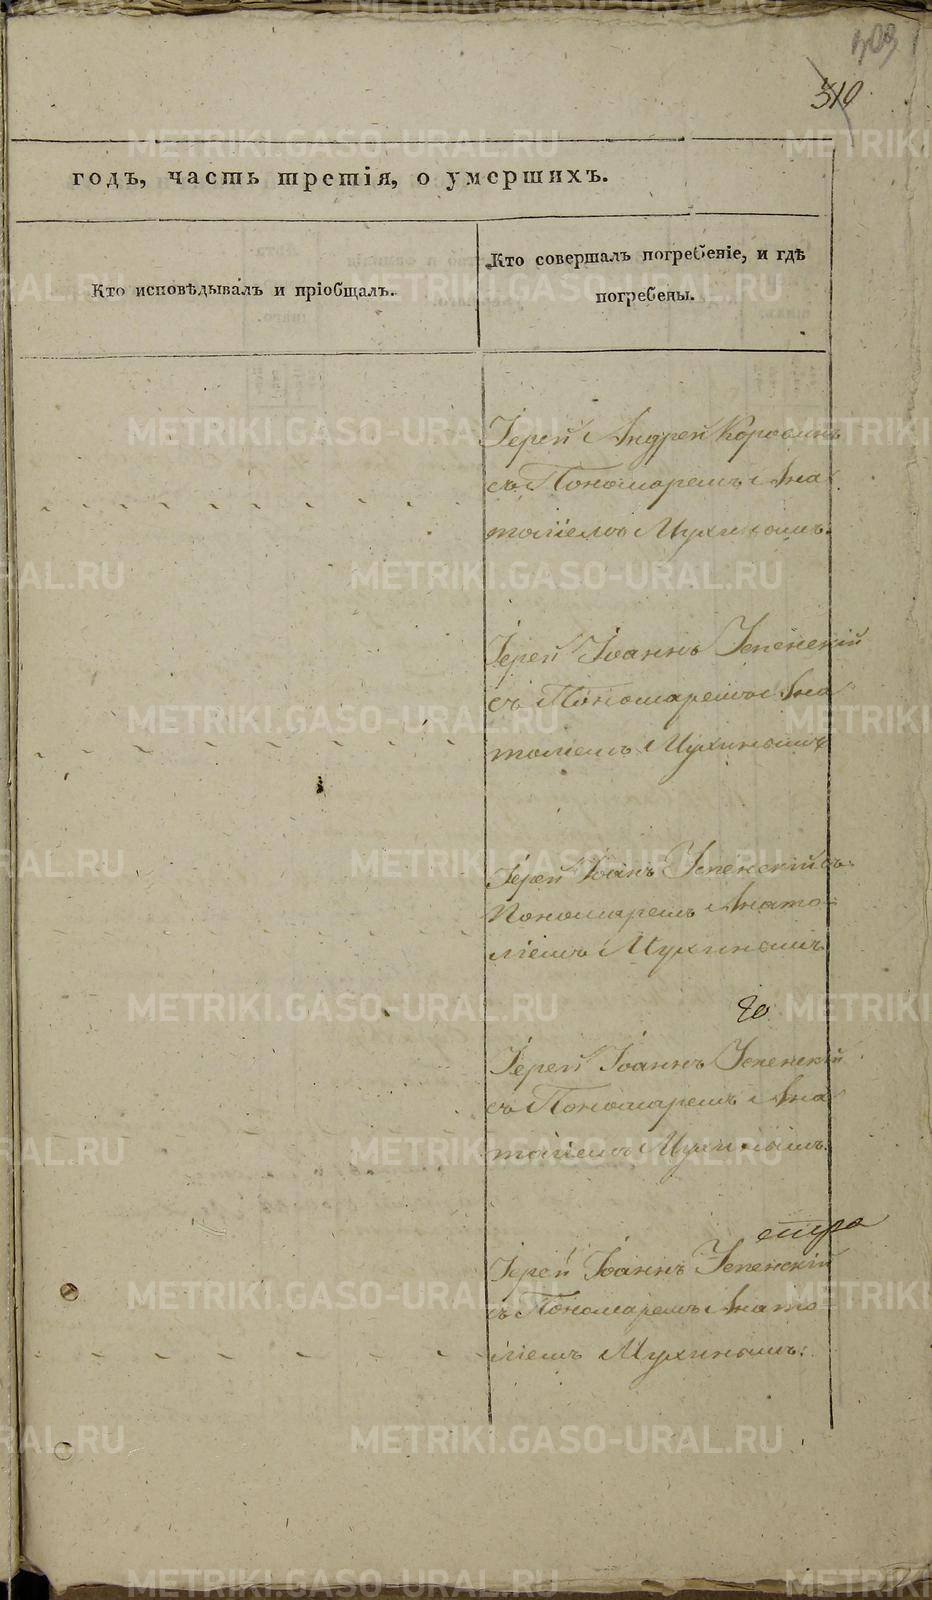 309
310
годъ, часть третія, о умершихъ.
Кто исповѣдывалъ и пріобщалъ.
Кто совершалъ погребеніе, и гдѣ
погребены.
Іерей Андрей Коровинъ
съ Пономаремъ Ана
толіемъ Мухинымъ.
Іерей Іоаннъ Успенскій
съ Пономаремъ Ана
толіемъ Мухинымъ
Іерей Іоанъ Успенскій съ
Пономаремъ Анато-
ліемъ Мухинымъ
Іерей Іоаннъ Успенскій
съ Пономаремъ Ана
толіемъ Мухинымъ.
Іерей Іоаннъ Успенскій
съ Пономаремъ Анато=
ліемъ Мухинымъ.
METRIKI.GASO-URAL.RU